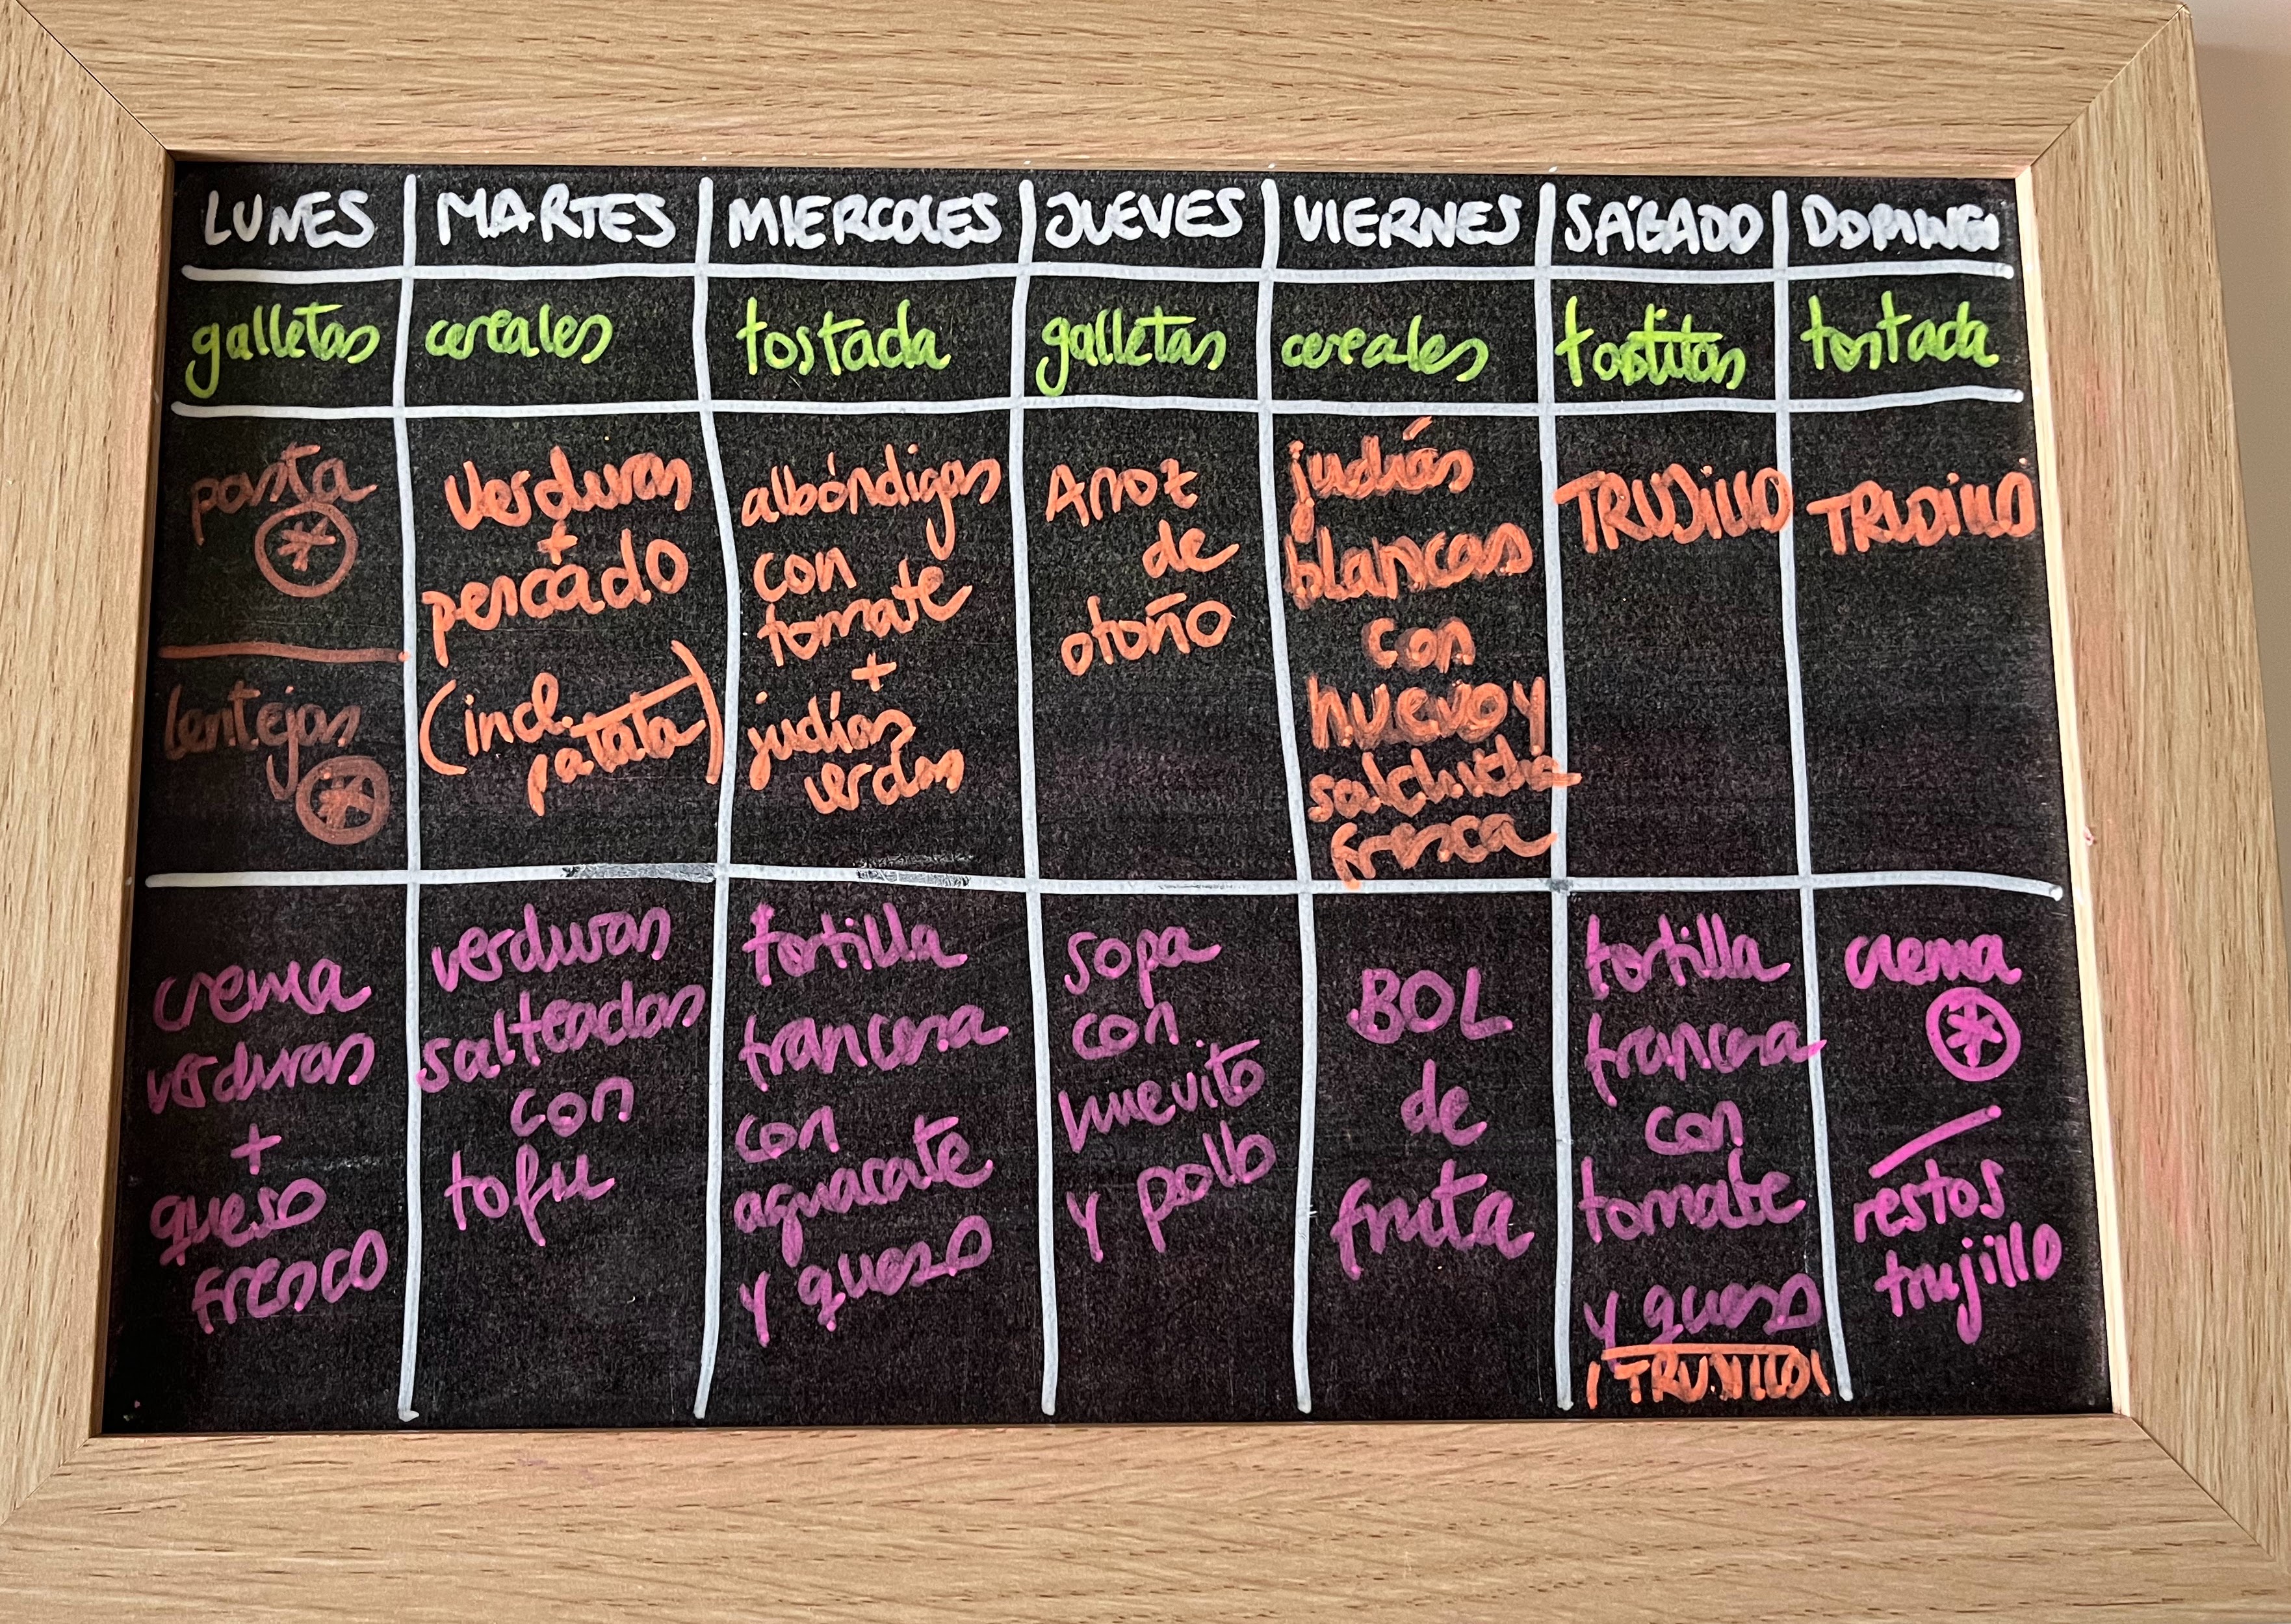 LUNES MARTES MIERCOLES JUEVES VIERNES SÁGADO DOMINGO
galletas cereales tostada galletas cereales tostitas tostada
pasta
*
lentejas
*
verduras
+
pescado
(incl.
patata)
albóndigas
con
tomate
+
judías
verdes
Arroz
de
otoño
judías
blancas
con
huevo y
salchicha
fresca
TRUJILLO
TRUJILLO
crema
verduras
+
queso
fresco
verduras
salteadas
con
tofu
tortilla
francesa
con
aguacate
y queso
sopa
con
huevito
y pollo
BOL
de
fruta
tortilla
francesa
con
tomate
y queso
¡TRUJILLO!
crema
*
/
restos
trujillo